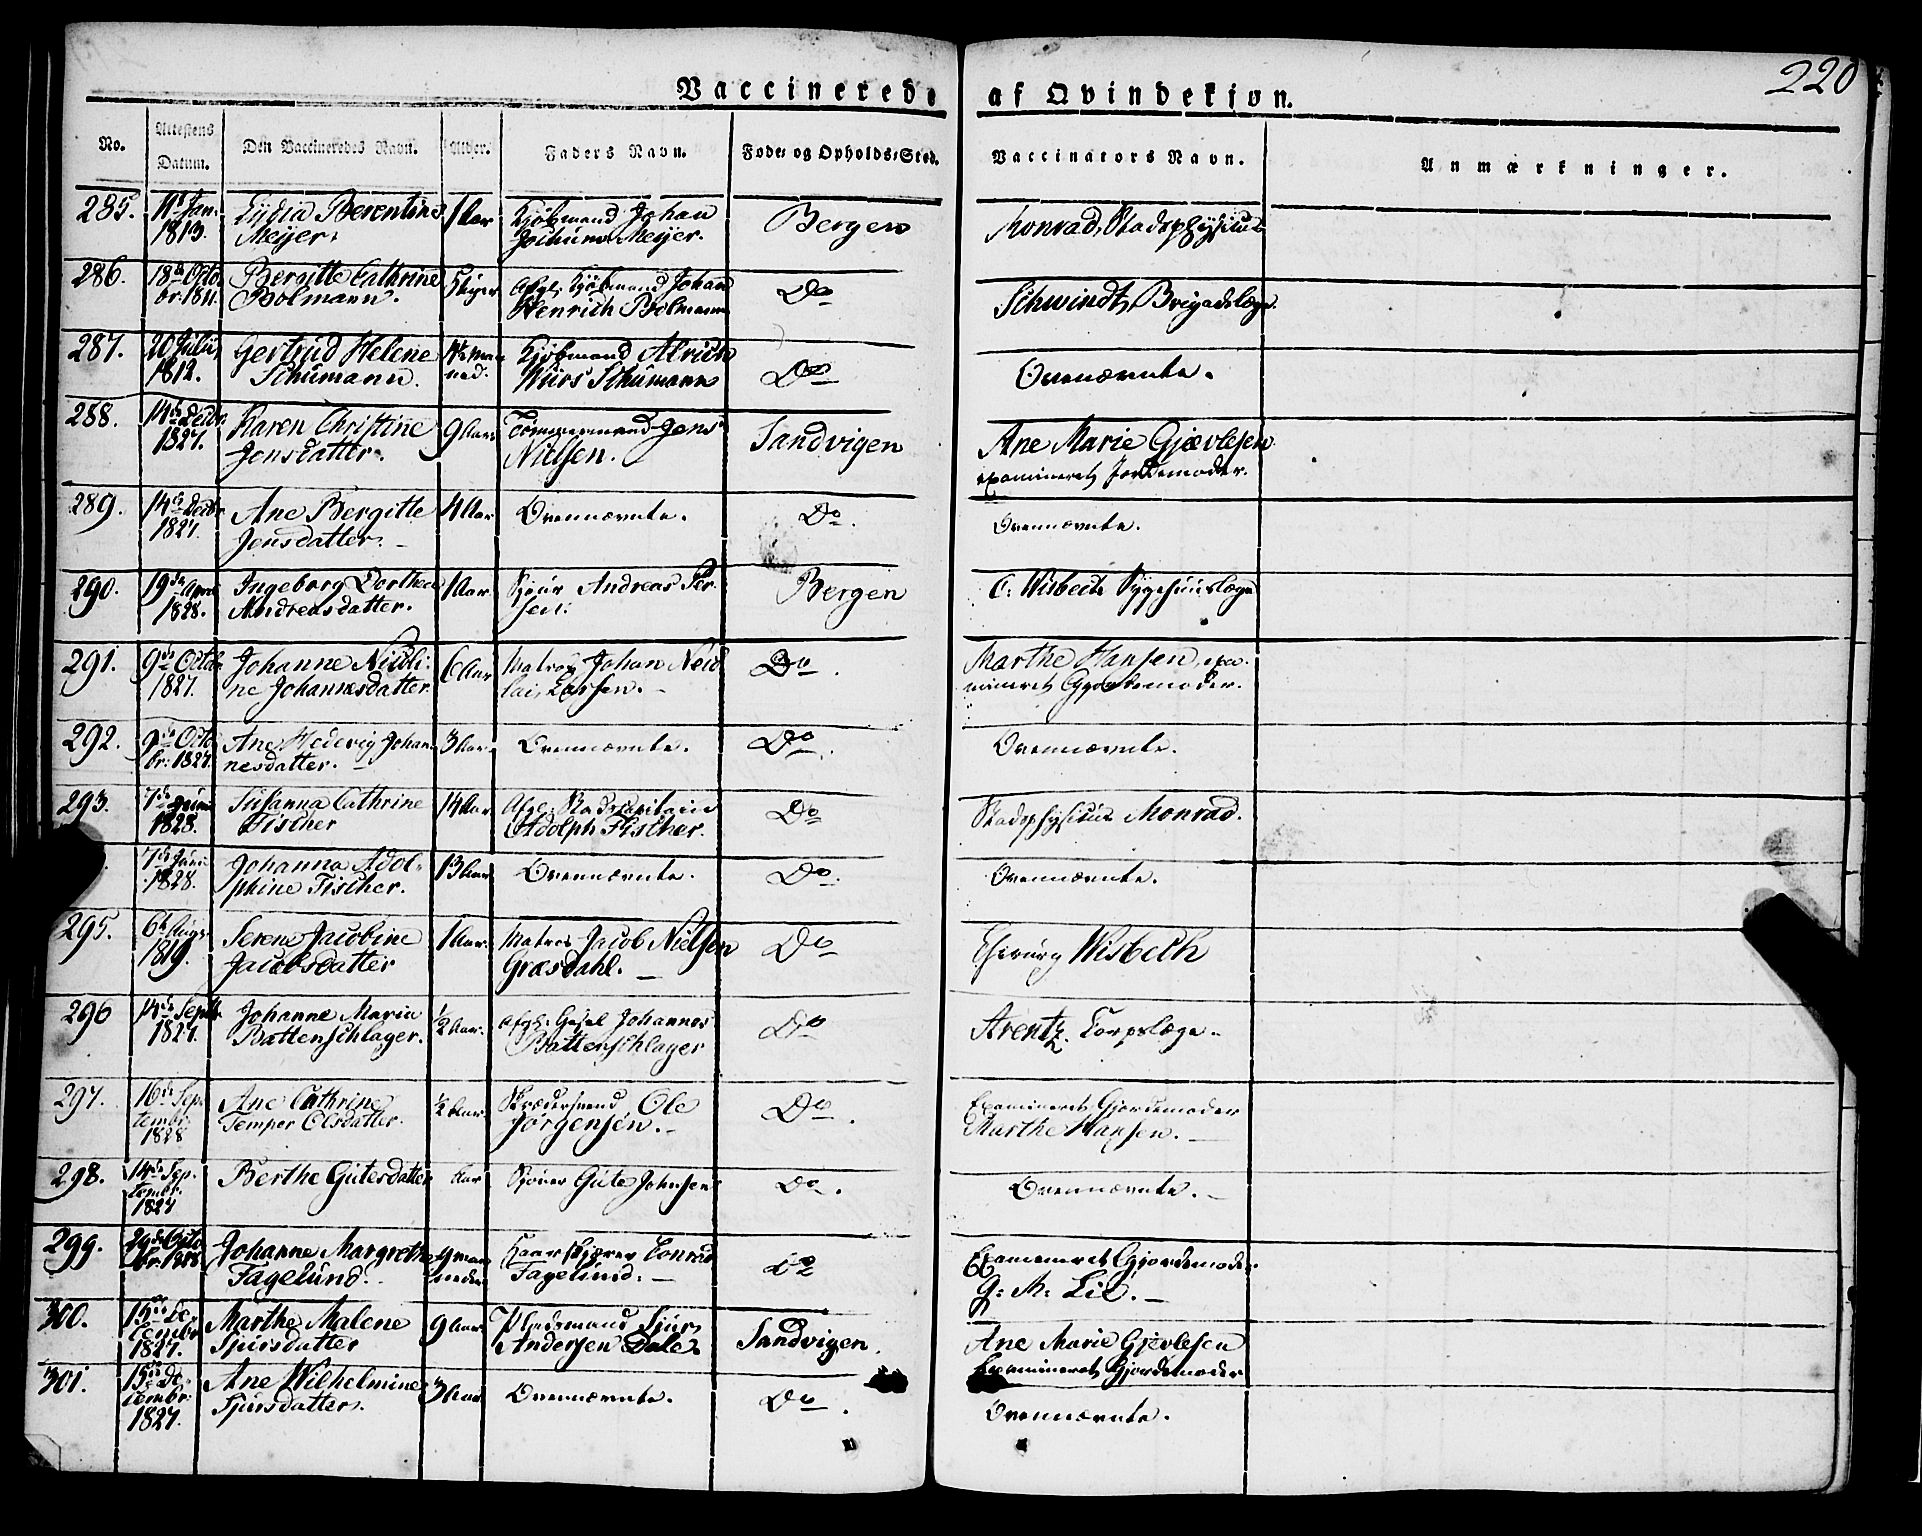 Vaccinerede af Qvindekjøn.
220
No.
Attestens Datum.
Den Vaccineredes Navn.
Alder.
Faders Navn.
Føde- og Opholds-Sted.
Vaccinators Navn.
Anmærkninger.
285. 11te Jan. Lydia Berentine 1 Aar Kjøbmand Johan Bergen Monrad, Stadsphysicus
1813. Meyer. Jochum Meyer.
286. 18de Octo- Bergitte Cathrine afgl. Kjøbmand Johan Do Schwindt, Brigadelæge
br. 1811. Bolmann. Henrich Bolmann
287. 20 Julii Gertrud Helene Kjøbmand Do Ovennævnte.
1812. Schumann. Schumann
288. 14de Decbr. Karen Christine 9 Aar Tømmermand Jens Sandvigen Ane Marie Gjævlesen
1827. Jensdatter. Nielsen. examineret Jordemoder.
289. 14de Decbr. Ane Bergitte 4 Aar Ovennævnte. Do. Ovennævnte.
1827. Jensdatter.
290. 19de April Ingeborg Dorthea 1 Aar Andreas Per- Bergen C: Wisbech Sygehuuslæge
1828. Andreasdatter. sen.
291. 9de Octbr. Johanne Nicoli- 6 Aar Matros Johan Nico- Do. Marthe Hansen, exa-
1827. ne Johannesdatter. lai Larsen. mineret Gjordemoder.
292. 9de Octo- Ane Hedevig Johan- 3 Aar. Ovennævnte. Do. Ovennævnte.
br: 1827. nesdatter.
293. 7de Juni Susanna Cathrine 14 Aar Afgl. Do Stadsphysicus Monrad.
1828. Fischer Adolph Fischer.
7de Juni Johanna Adol- 13 Aar Ovennævnte. Do. Ovennævnte.
1828. phine Fischer.
295. 6te Augs. Serene Jacobine 1 Aar. Matros Jacob Nielsen Do Chirurg Wisbech
1819. Jacobsdatter Græsdahl.
296 14de Septb. Johanne Maria ½ Aar. afgl. Johannes Do Arentz. Corpslæge.
1827. Battenschlager. Battenschlager
297. 16de Sep- Ane Cathrine ½ Aar. Skrædersvend Ole Do. Examineret Gjordemoder
tembr. Temper Olsdatter. Jørgensen. Marthe Hansen.
1828
298. 14de Sep- Berthe Gutesdatter Aar Gute Johnsen Do. Ovennævnte.
tembr.
1827
299. 29de Octo- Johanne Margrethe 9 maa- Haarskjærer Conrad Do Examineret Gjordemoder
br. 1828. Fagelund. neder Fagelund. G: M: Lie.
300. 15de De- Marthe Malene 9 Aar. Pladsmand Sjur Sandvigen. Ane Marie Gjevlesen
cembr. Sjursdatter Andersen Dale. Examineret Gjordemoder
1827.
301. 15de De- Ane Wilhelmine 3 Aar Ovennævnte. Do. Ovennævnte.
cembr. Sjursdatter.
1827.